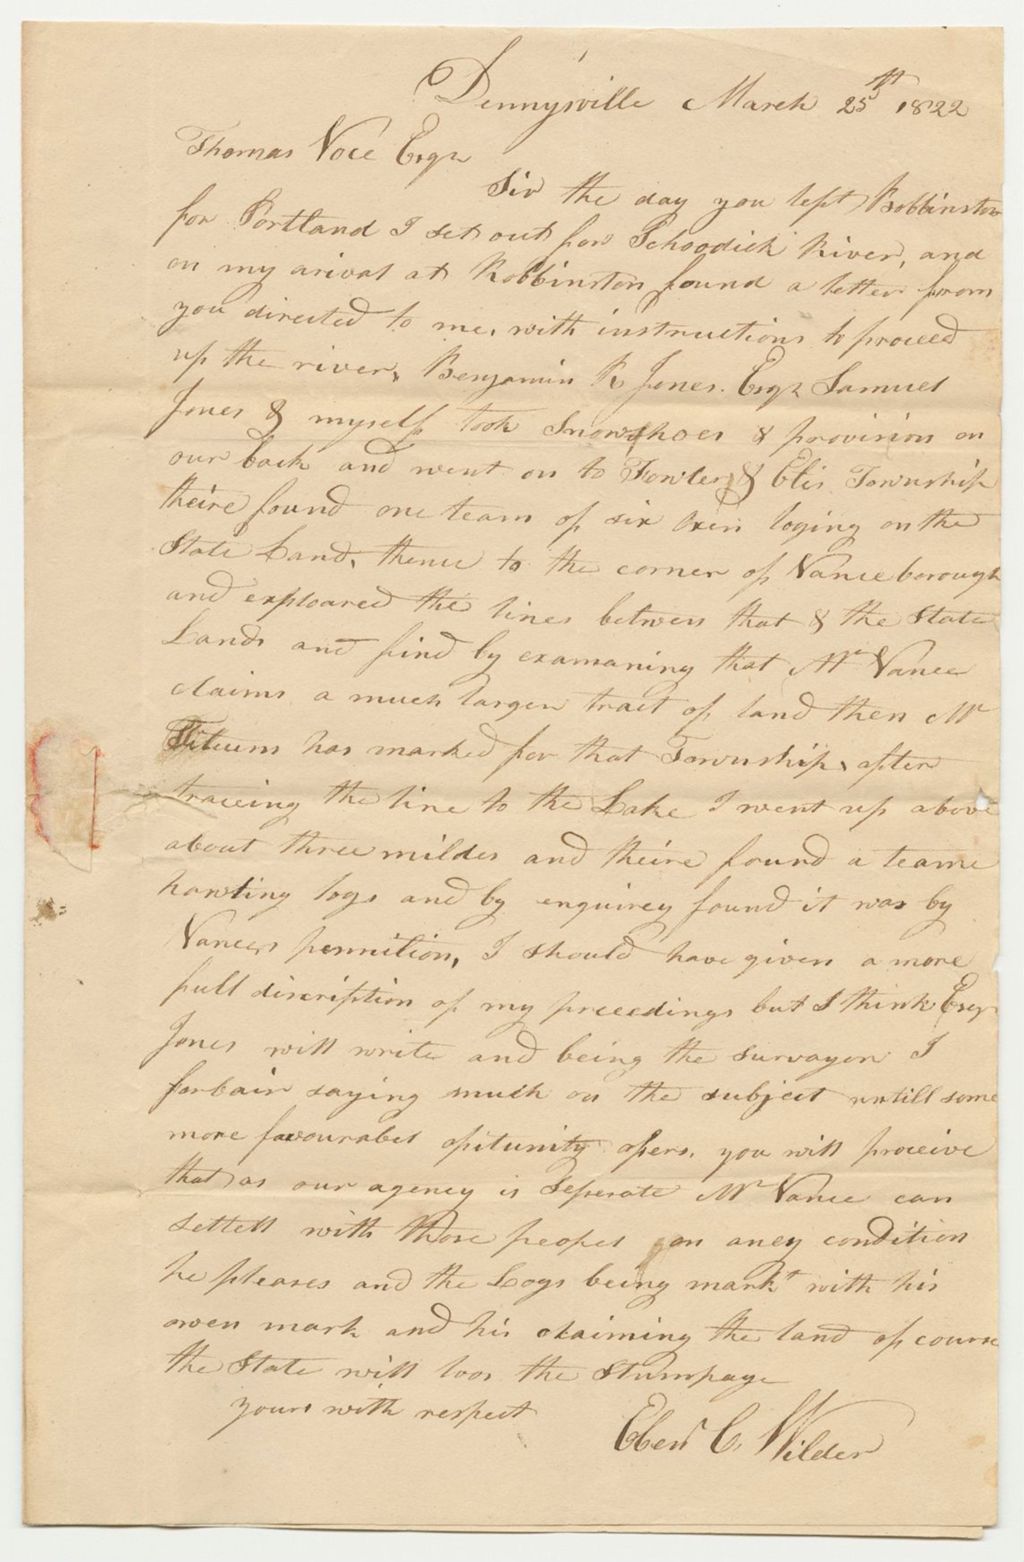 Dennysville March 25th 1822
Thomas Voce Esqr
Sir the day you left Robbinston
for Portland I set out for Schoodick River, and
on my arival at Robbinston found a letter from
you directed to me, with instructions to proceed
up the river, Benjamin R Jones. Esqr Samuel
Jones & myself took Snowshoes & provision on
our back and went on to Fowler & Elis Township
theire found one team of six Oxen loging on the
State Land, thence to the corner of Vanceborough
and exploared the lines between that & the State
Lands and find by examaning that Mr Vance
claims a much larger tract of land then Mr
Titcum has marked for that Township, after
traceing the line to the Lake I went up above
about three mildes and theire found a teame
hawling logs and by enquirey found it was by
Vances permition, I should have given a more
full discription of my preceedings but I think Esqr
Jones will write and being the survayor I
forbair saying much on the subject untill some
more favourabel opitunity offers, you will proceive
that as our agency is Seperate Mr Vance can
settell with those peopel on aney condition
he pleases and the Logs being markt with his
owen mark and his claiming the land of course
the State will loos the Stumpage
yours with respect
Eben C. Wilder